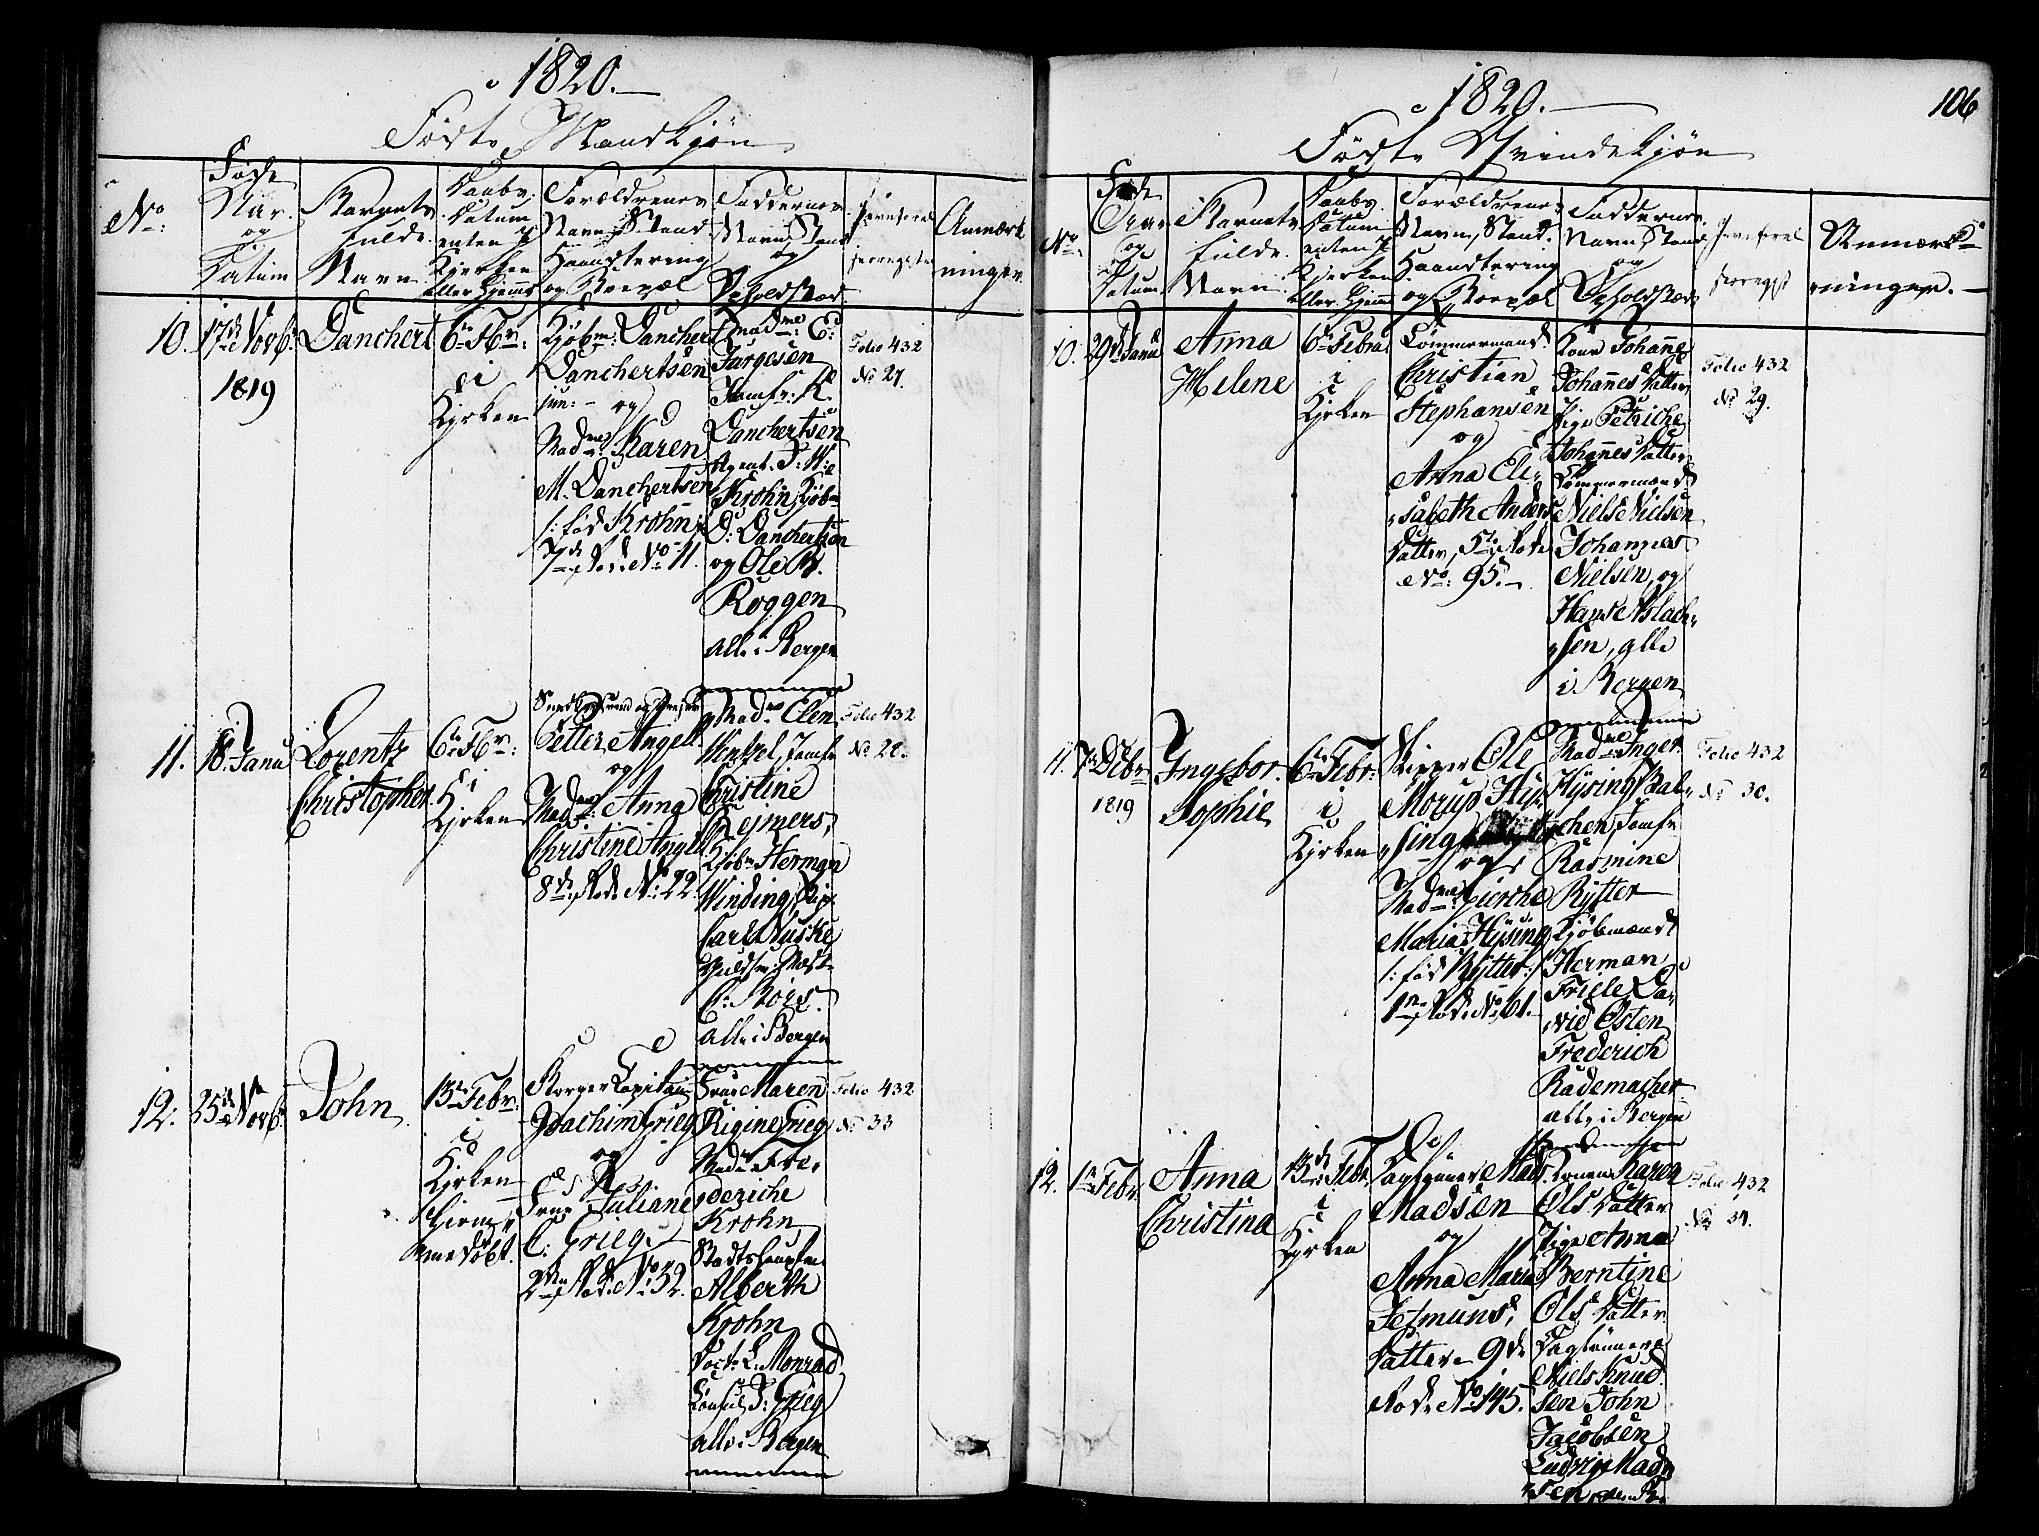 1820.
Födte Mandkjön
No:
Föde
Aar
og
Datum
Barnets
fulde
Navn
Daabs
Datum
enten i
Kirken
eller hjemme
Forældrenes
Navn, Stand
Haandtering
og Boepæl
Faddernes
Navn, Stand
og
Opholdsted
Jevnførel
Anmærk
ninger
10.
17de Novbr
1819
Danchert
6te Fbr:
i
Kirken
Kjøbm: Danchert
Danchertsen
jun: og
Madme Karen
M. Danchertsen
/: fød Krohn :/
7de Rode No 11.
Madme: C:
Jürgesen
Jomfr: K.
Danchertsen
Agent D: W:
Krohn, Kjøbm
D: Danchertsen
og Ole B.
Roggen
alle i Bergen
Folio 432
No 27.
11.
18. Janu
Lorentz
Christopher
6te Fbr:
i
Kirken
Petter Angell
og
Madme: Anna
Christine Angell
8de Rode No: 22.
Madme Elen
Wenzel, Jomfr
Cristine
Reimers,
Kjøbm Herman
Winding,
Carl Kuske
C: Börs.
alle i Bergen
Folio 432
No 28.
12.
25de Novbr
John
13de Febr:
i
Kirken
hjemme
døbt.
Borger Capitain
Joachim Grieg
og
Frue Juliane
C: Grieg
2den Rode No: 52.
Frue Maren
Rigine Grieg
Madme Fre-
deriche
Krohn
Stadtshauptm
Alberth
Krohn
Doct: L: Monrad
Consul J: Grieg
alle i Bergen
Folio 432
No 33
1820.
106
Födte Qvindekjön
No:
Föde
Aar
og
Datum
Barnets
fulde
Navn
Daabs
Datum
enten i
Kirken
eller hjemme
Forældrenes
Navn, Stand
Haandtering
og Boepæl
Faddernes
Navn, Stand
og
Opholdsted
Jevnførel
Anmærk
ninger.
10.
29de Janu
Anna
Helene
6te Febru
i
Kirken
Tömmermand
Christian
Stephansen
og
Anna Eli-
sabeth Anders
Datter, 5te Rode
No: 95.
Kone Johanne
Johannes Datter,
Pige Petriche
Johannes Datter
Tømmermænd
Niels Nielsen
Johannes
Nielsen, og
Hans Aslach-
sen, alle
i Bergen
Folio 432
No 29.
11.
7de Debr
1819
Ingebor.
Sophie
6te Febr:
i
Kirken
Skipper Ole
Morup Hy-
sing
og
Madme: Girthe
Maria Hysing
/: fød Rytter :/
1ste Rode No 61.
Madme Inger
Hysing Bal-
chen, Jomfr
Rasmine
Rytter
Kjöbmænd
Herman
Friele Da-
vid Osten
Frederich
Rademacher
alle i Bergen
Folio 432
No 30.
12.
1ste Febr
Anna
Christina
13de Febr
i
Kirken
Dagløner Mads
Madsen
og
Anna Maria
Jetmunds
Datter 9de
Rode No 145.
Konen Karen
Ols Datter
Pige Anna
Berntine
Ols Datter
Daglønnere
Niels Knud
sen John
Jacobsen
Ludvig Mad
sen
Folio 432
No 34.